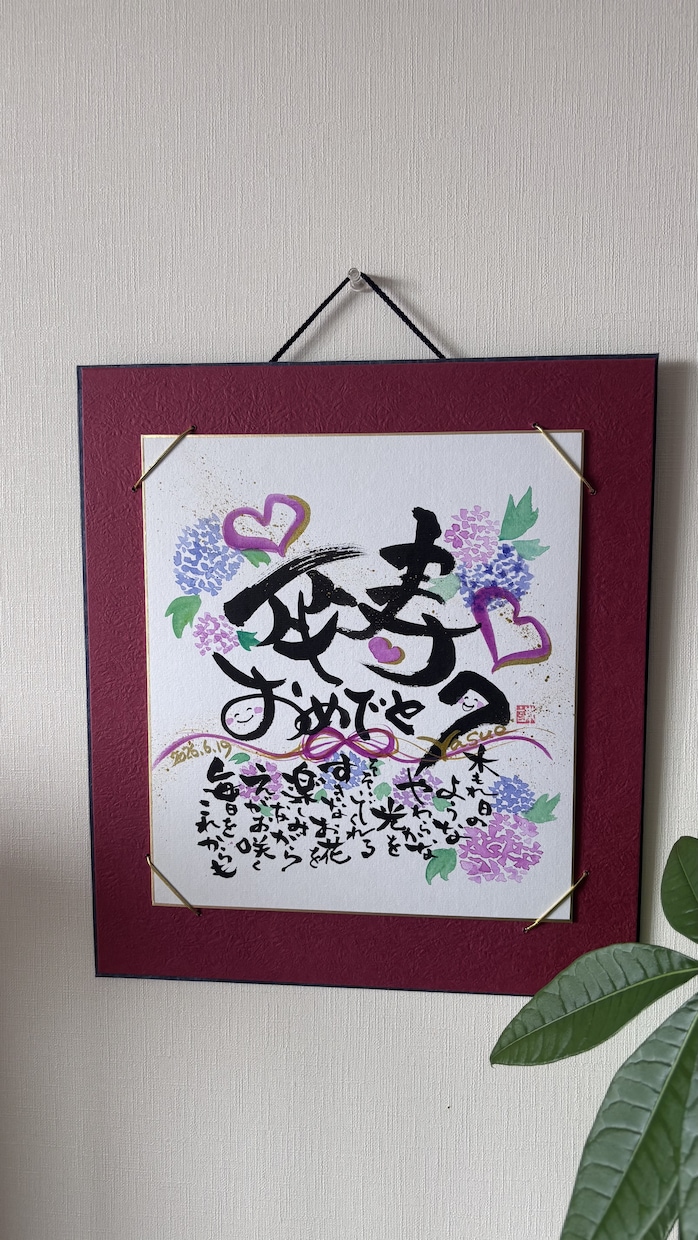 卒寿
おめでとう
2026.6.19
Yasuo
木もれ日の
ような
やわらかな
光を
そそいでくれる
すきなお花を
楽しみながら
えがお咲く
毎日を
これからも